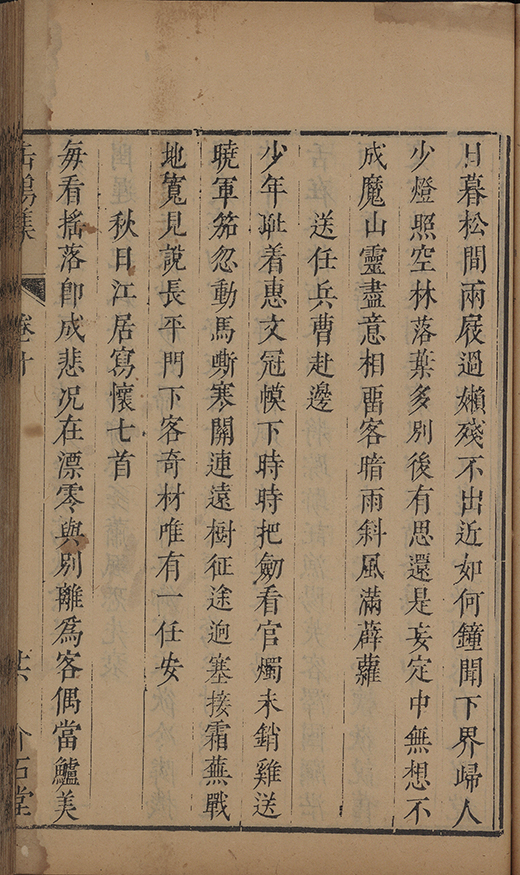 日暮松間兩屐過嬾殘不出近如何鐘聞下界歸人
少燈照空林落葉多別後有思還是妄定中無想不
成魔山靈盡意相畱客暗雨斜風滿薜蘿
送任兵曹赴邊
少年耻着惠文冠幙下時時把劒看官燭未銷雞送
曉軍笳忽動馬嘶寒關連遠樹征途迥塞接霜蕪戰
地寬見說長平門下客奇材唯有一任安
秋日江居寫懷七首
每看搖落卽成悲况在漂零與別離爲客偶當鱸美
卷十
介石堂